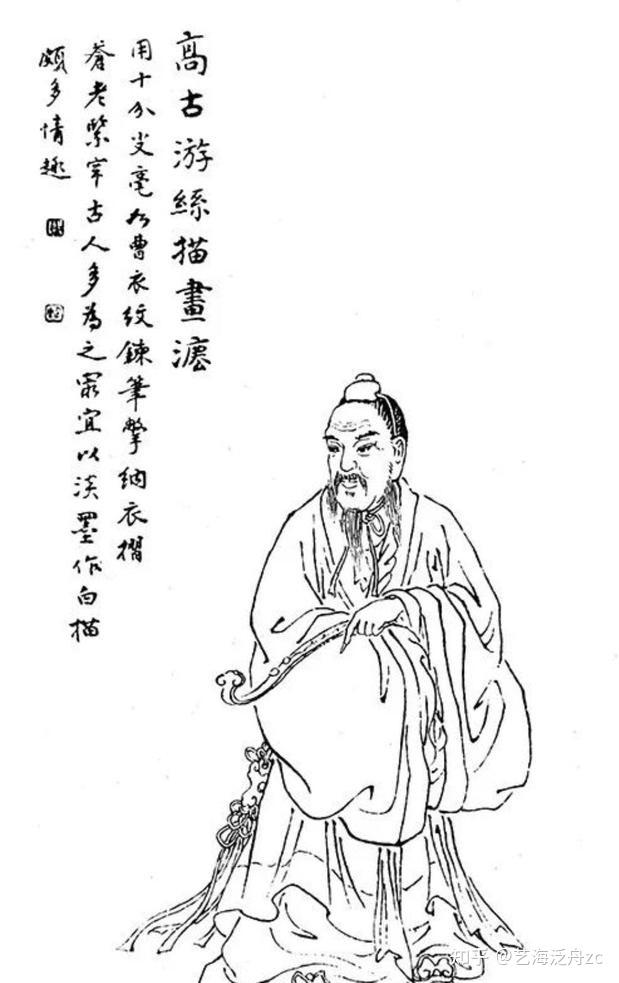 高古游絲描畫法
用十分尖毫如曹衣紋鍊筆撆納衣摺
蒼老緊牢古人多為之最宜以淡墨作白描
頗多情趣
知乎 @艺海泛舟zc